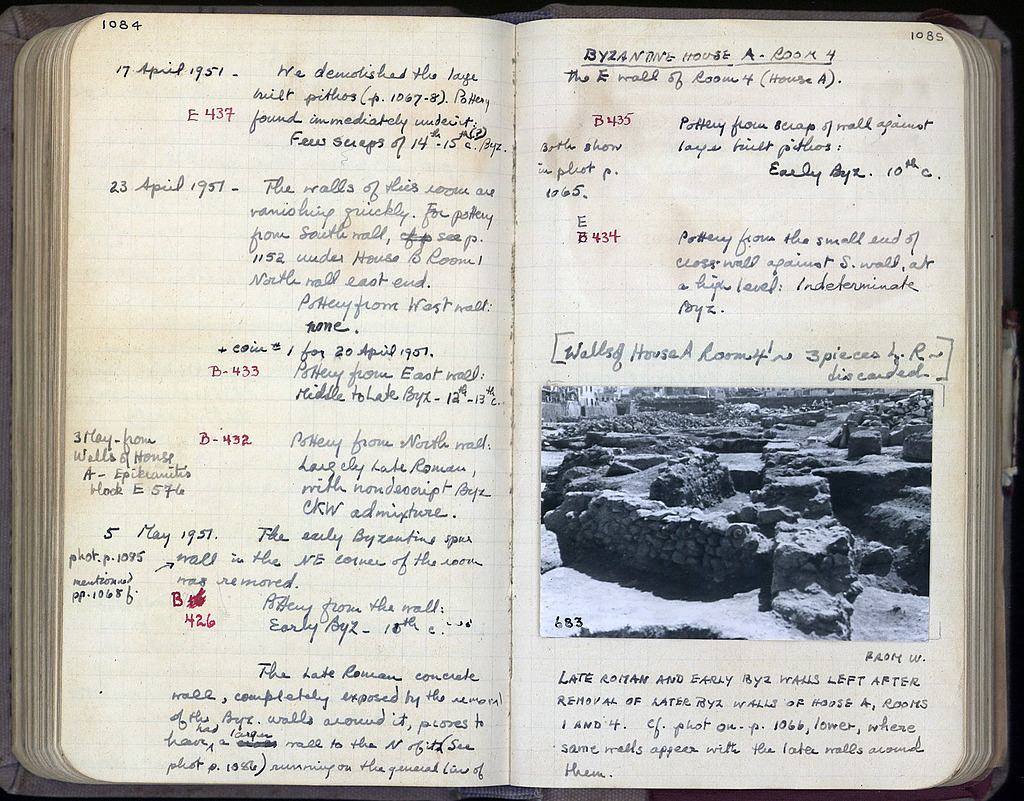 1084
17 April 1951 - We demolished the large
built pithos (p. 1067-8). Pottery
E 437 found immediately under it:
Few scraps of 14th-15th(?) c. Byz.
23 April 1951 - The walls of this room are
vanishing quickly. For pottery
from South wall, see p.
1152 under House B Room 1
North wall east end.
Pottery from West wall:
none.
+ coin #1 for 20 April 1951.
B-433 Pottery from East wall:
Middle to Late Byz - 12th-13th c.
3 May - from
Walls of House
A - Epikranitis
block E 576
B-432 Pottery from North wall:
Largely Late Roman,
with nondescript Byz
CKW admixture.
5 May 1951. The early Byzantine spur
phot. p. 1085
mentioned
pp. 1068 f.
wall in the NE corner of the room
was removed.
B
426
Pottery from the wall:
Early Byz - 10th c.
The Late Roman concrete
wall, completely exposed by the removal
of the Byz. walls around it, proves to
have had a larger wall to the N of it (See
phot p. 1086) running on the general line of
1085
BYZANTINE HOUSE A - ROOM 4
the E wall of Room 4 (House A).
B435 Pottery from scrap of wall against
large built pithos:
Early Byz. 10th c.
Both show
in phot p.
1065.
E
B 434 Pottery from the small end of
cross wall against S. wall, at
a high level: Indeterminate
Byz.
[Walls of House A Room 4 ~ 3 pieces L.R ~
discarded]
683
FROM W.
LATE ROMAN AND EARLY BYZ WALLS LEFT AFTER
REMOVAL OF LATER BYZ WALLS OF HOUSE A, ROOMS
1 AND 4. Cf. phot on p. 1066, lower, where
same walls appear with the later walls around
them.